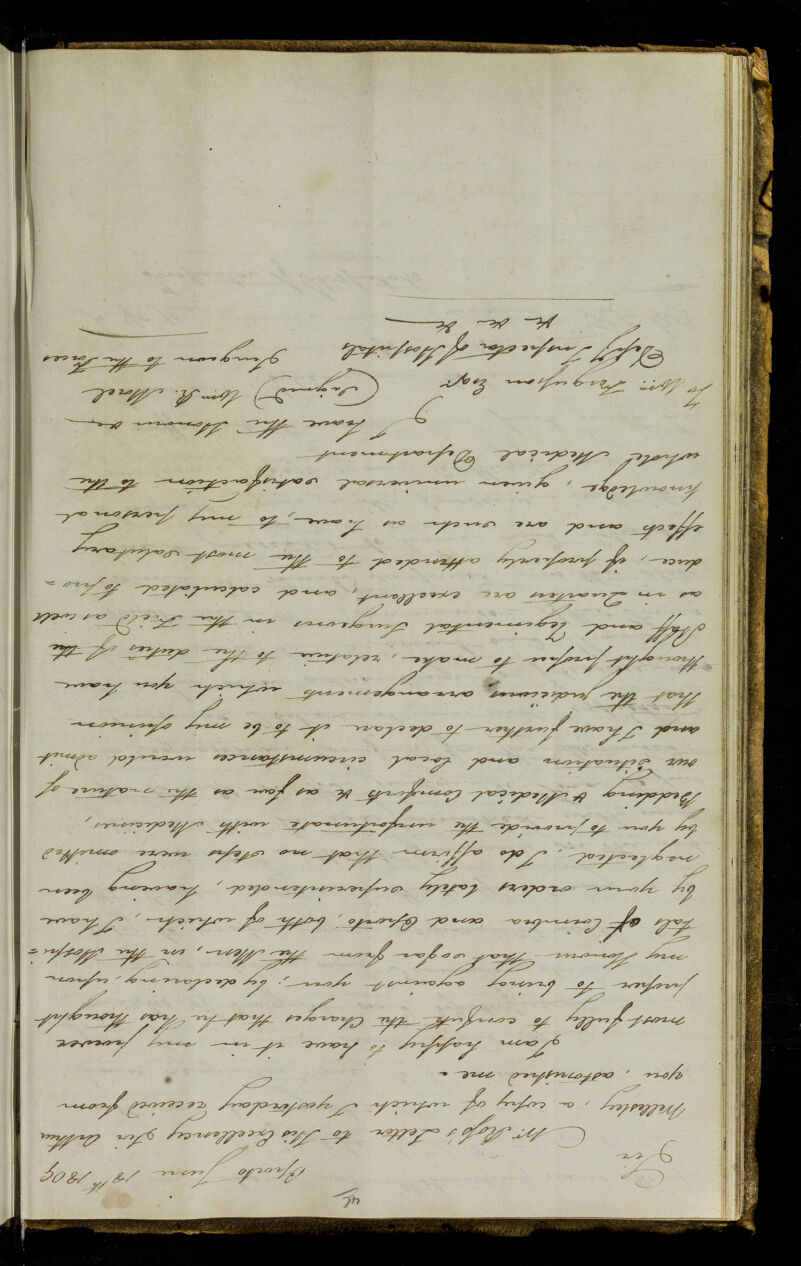 46
Oporto June 12th 1809
Sir
Mr. Rose's Letter to His Excellency Sir Arthur
Wellesley, a copy of which I yesterday received from
you, astonished me.
I am happy to have it in my power
most fully to confute the Charges that he has thought
proper to bring against you; by declaring, upon
my Honour that so far from the Men, in the Hospi=
tals of Coimbra and Oporto, both of which, I have
by your orders lately superintended, having been
neglected, I do affirm that no steps were omitted
by you to provide the unfortunate with Medicines,
Bedding & Medical Comforts &c as far as the nature of
our Situation and local circumstances would admit
and I have further to declare it to be my opinion
that the judicious arrangements which you have
thought proper to make, relative to the duties of the
Staff and Regimental Surgeons in the Field as well
as in Quarters are excellent, and calculated to pro=
duce, if properly attended to the most salutary
effects and are such as have, to my personal
knowledge, given universal satisfaction to the
whole Medical Department
I
have the Honour &c
To Wm. Fergusson Esqr. (Signed) Wm. R. Morel
Depy Inspector of Hospitals Surgeon to the Forces
&c &c &c